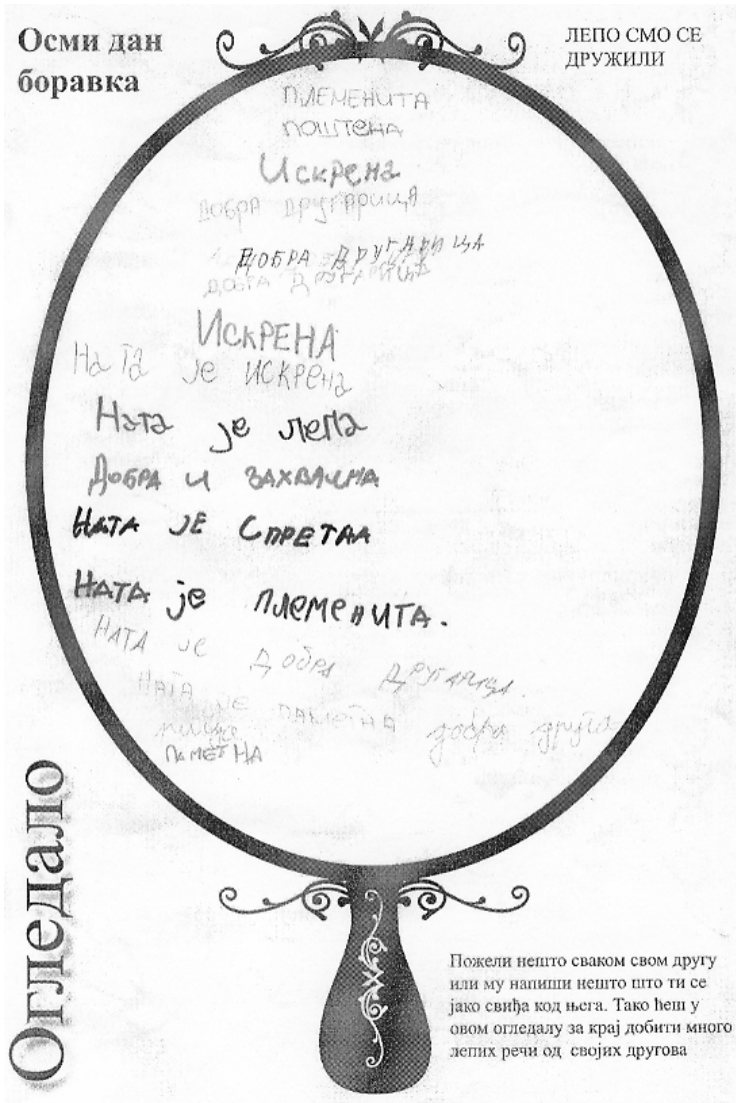 Осми дан
боравка
ЛЕПО СМО СЕ
ДРУЖИЛИ
ПЛЕМЕНИТА
ПОШТЕНА
Искрена
ДОБРА ДРУГАРИЦА
ДОБРА ДРУГАРИЦА
ДОБРА ДРУГАРИЦА
ИСКРЕНА
Ната је ИСКРЕНа
Ната је лепа
ДОБРА И ЗАХВАЛНА
НАТА ЈЕ СПРЕТАА
НАТА је ПЛЕМЕНИТА.
НАТА је ДОБРА ДРУГАРИЦА.
НАТА је ПАМЕТНА добра друга
ПАМЕТНА
Огледало
Пожели нешто сваком свом другу
или му напиши нешто што ти се
јако свиђа код њега. Тако ћеш у
овом огледалу за крај добити много
лепих речи од својих другова